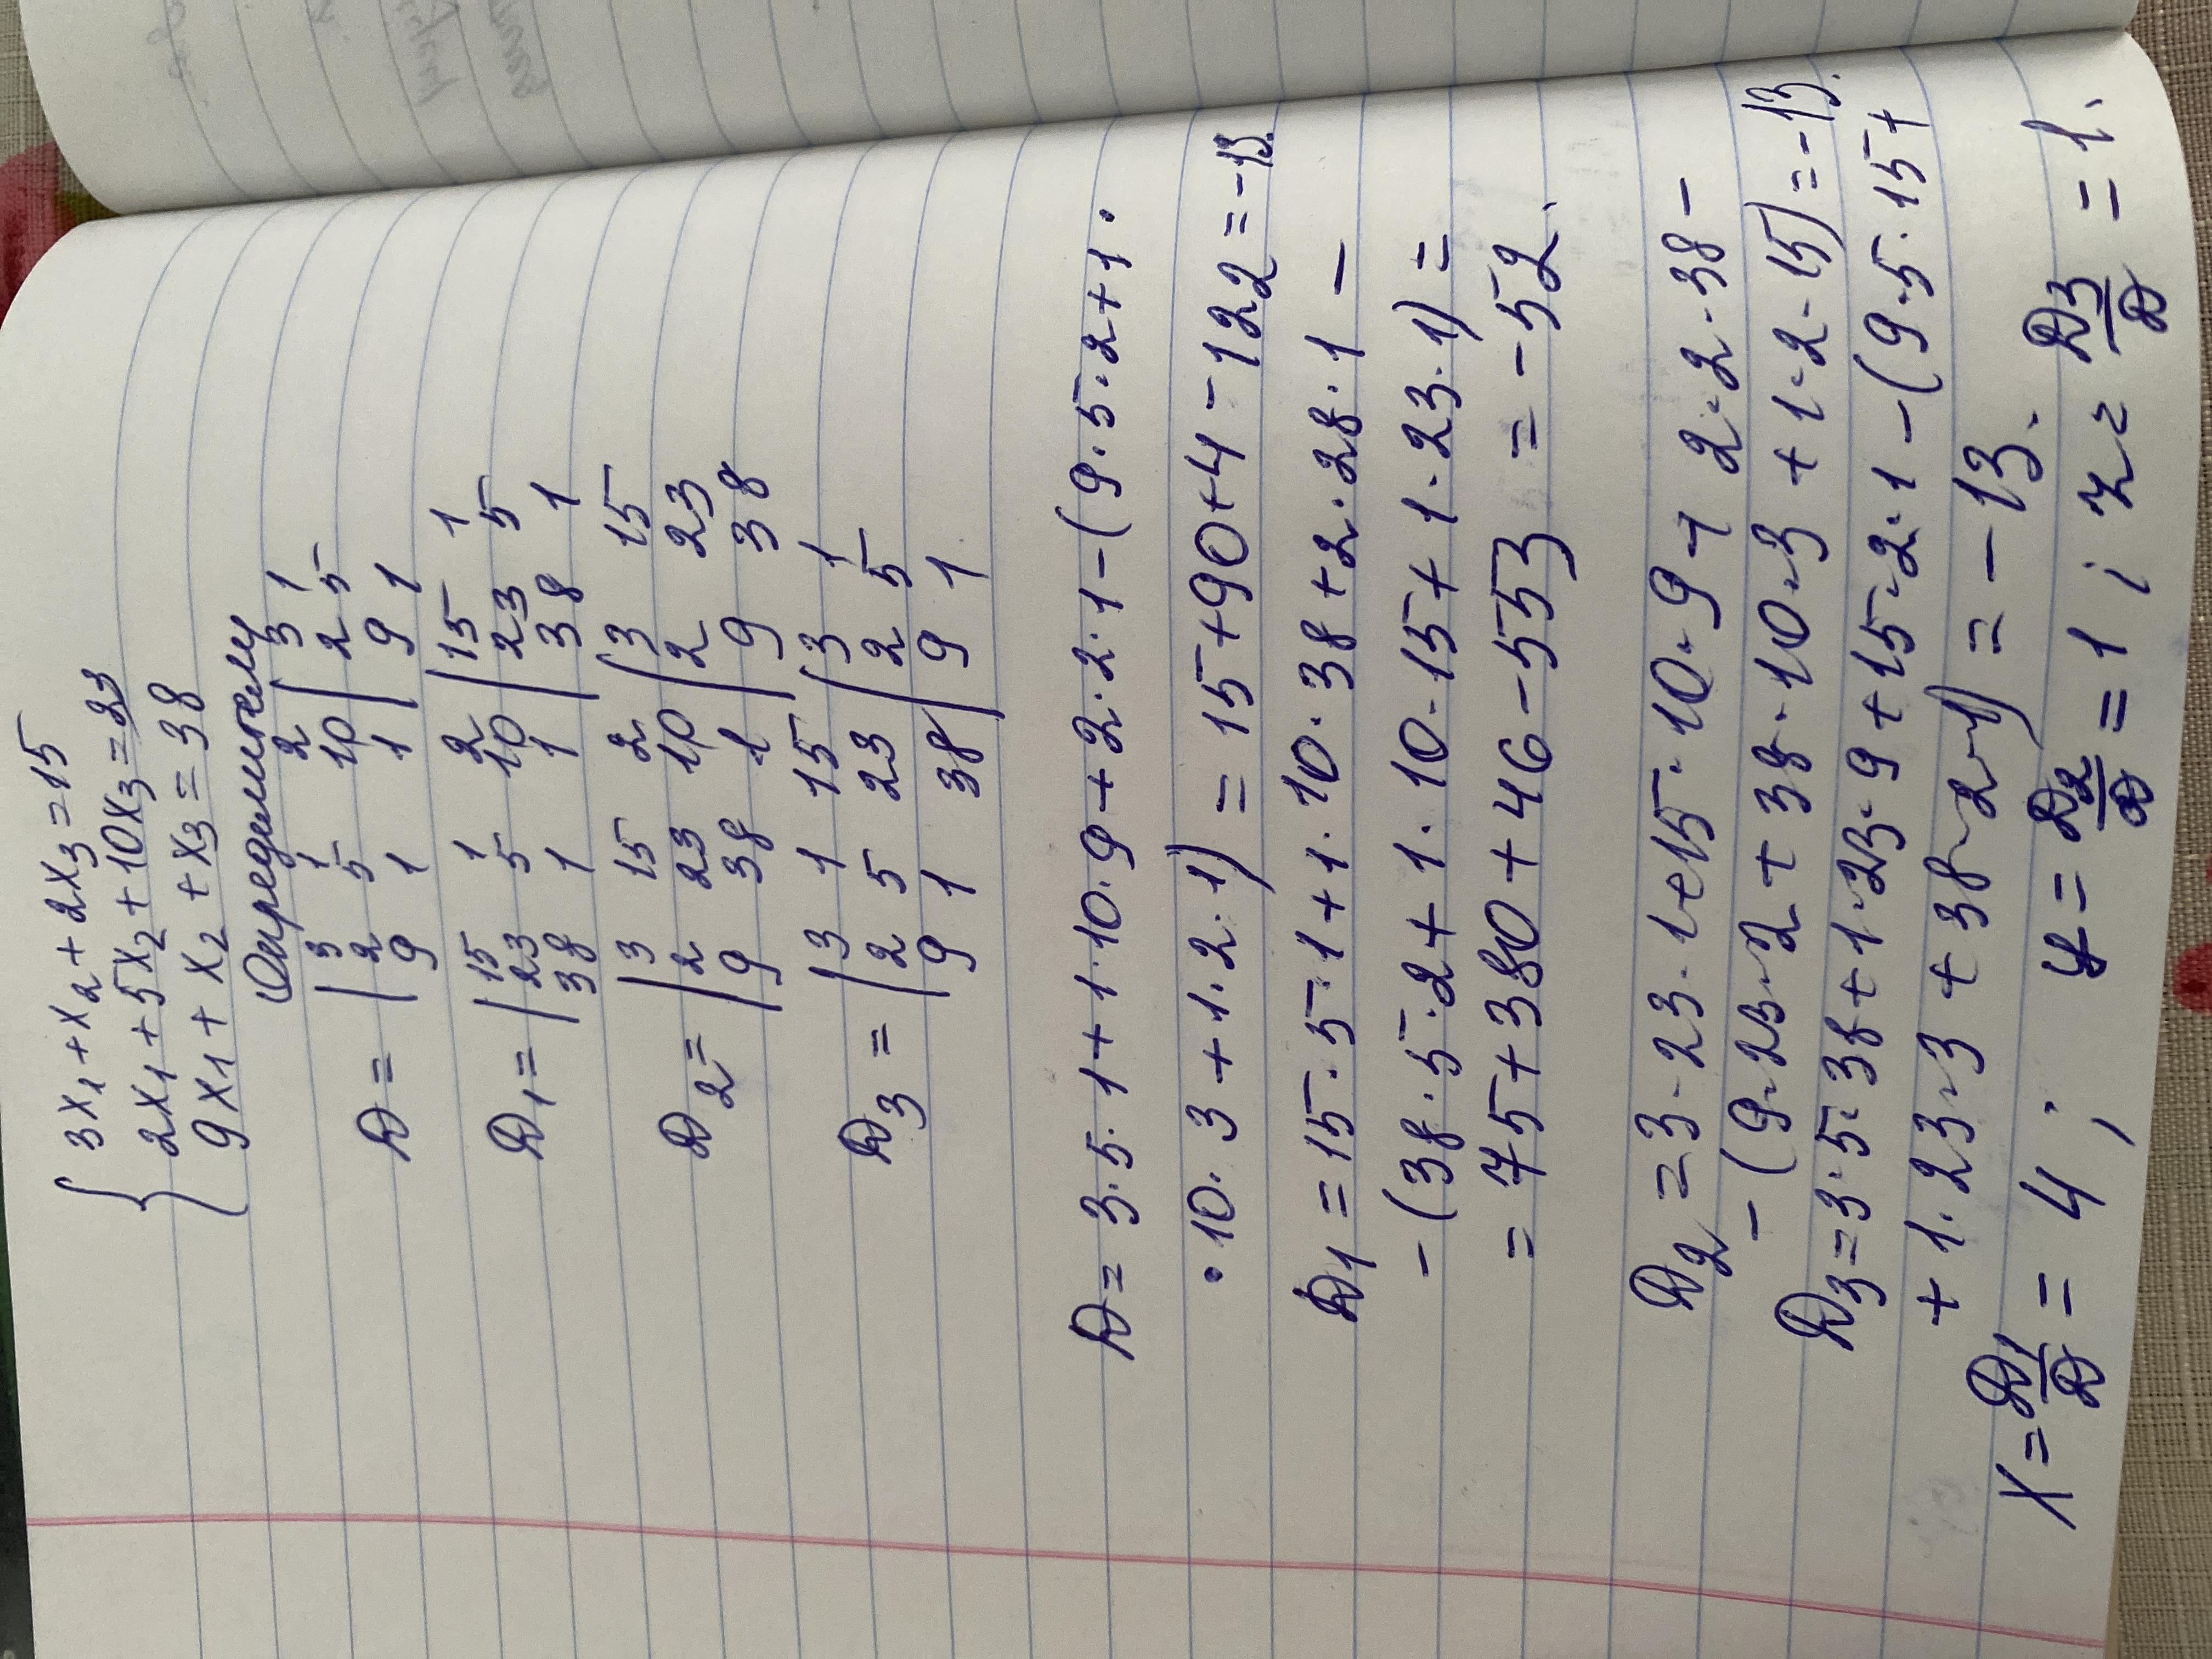 3x₁ + x₂ + 2x₃ = 15
2x₁ + 5x₂ + 10x₃ = 23
9x₁ + x₂ + x₃ = 38
Определители
D = | 3 1 2 | 3 1
2 5 10 | 2 5
9 1 1 | 9 1
D₁ = | 15 1 2 | 15 1
23 5 10 | 23 5
38 1 1 | 38 1
D₂ = | 3 15 2 | 3 15
2 23 10 | 2 23
9 38 1 | 9 38
D₃ = | 3 1 15 | 3 1
2 5 23 | 2 5
9 1 38 | 9 1
D = 3·5·1 + 1·10·9 + 2·2·1 - (9·5·2 + 1·
·10·3 + 1·2·1) = 15 + 90 + 4 - 122 = -13.
D₁ = 15·5·1 + 1·10·38 + 2·28·1 -
- (38·5·2 + 1·10·15 + 1·23·1) =
= 75 + 380 + 46 - 553 = -52.
D₂ = 3·23·1 + 15·10·9 + 2·2·38 -
- (9·23·2 + 38·10·3 + 1·2·15) = -13.
D₃ = 3·5·38 + 1·23·9 + 15·2·1 - (9·5·15 +
+ 1·23·3 + 38·2·1) = -13.
x = D₁/D = 4; y = D₂/D = 1; z = D₃/D = 1.